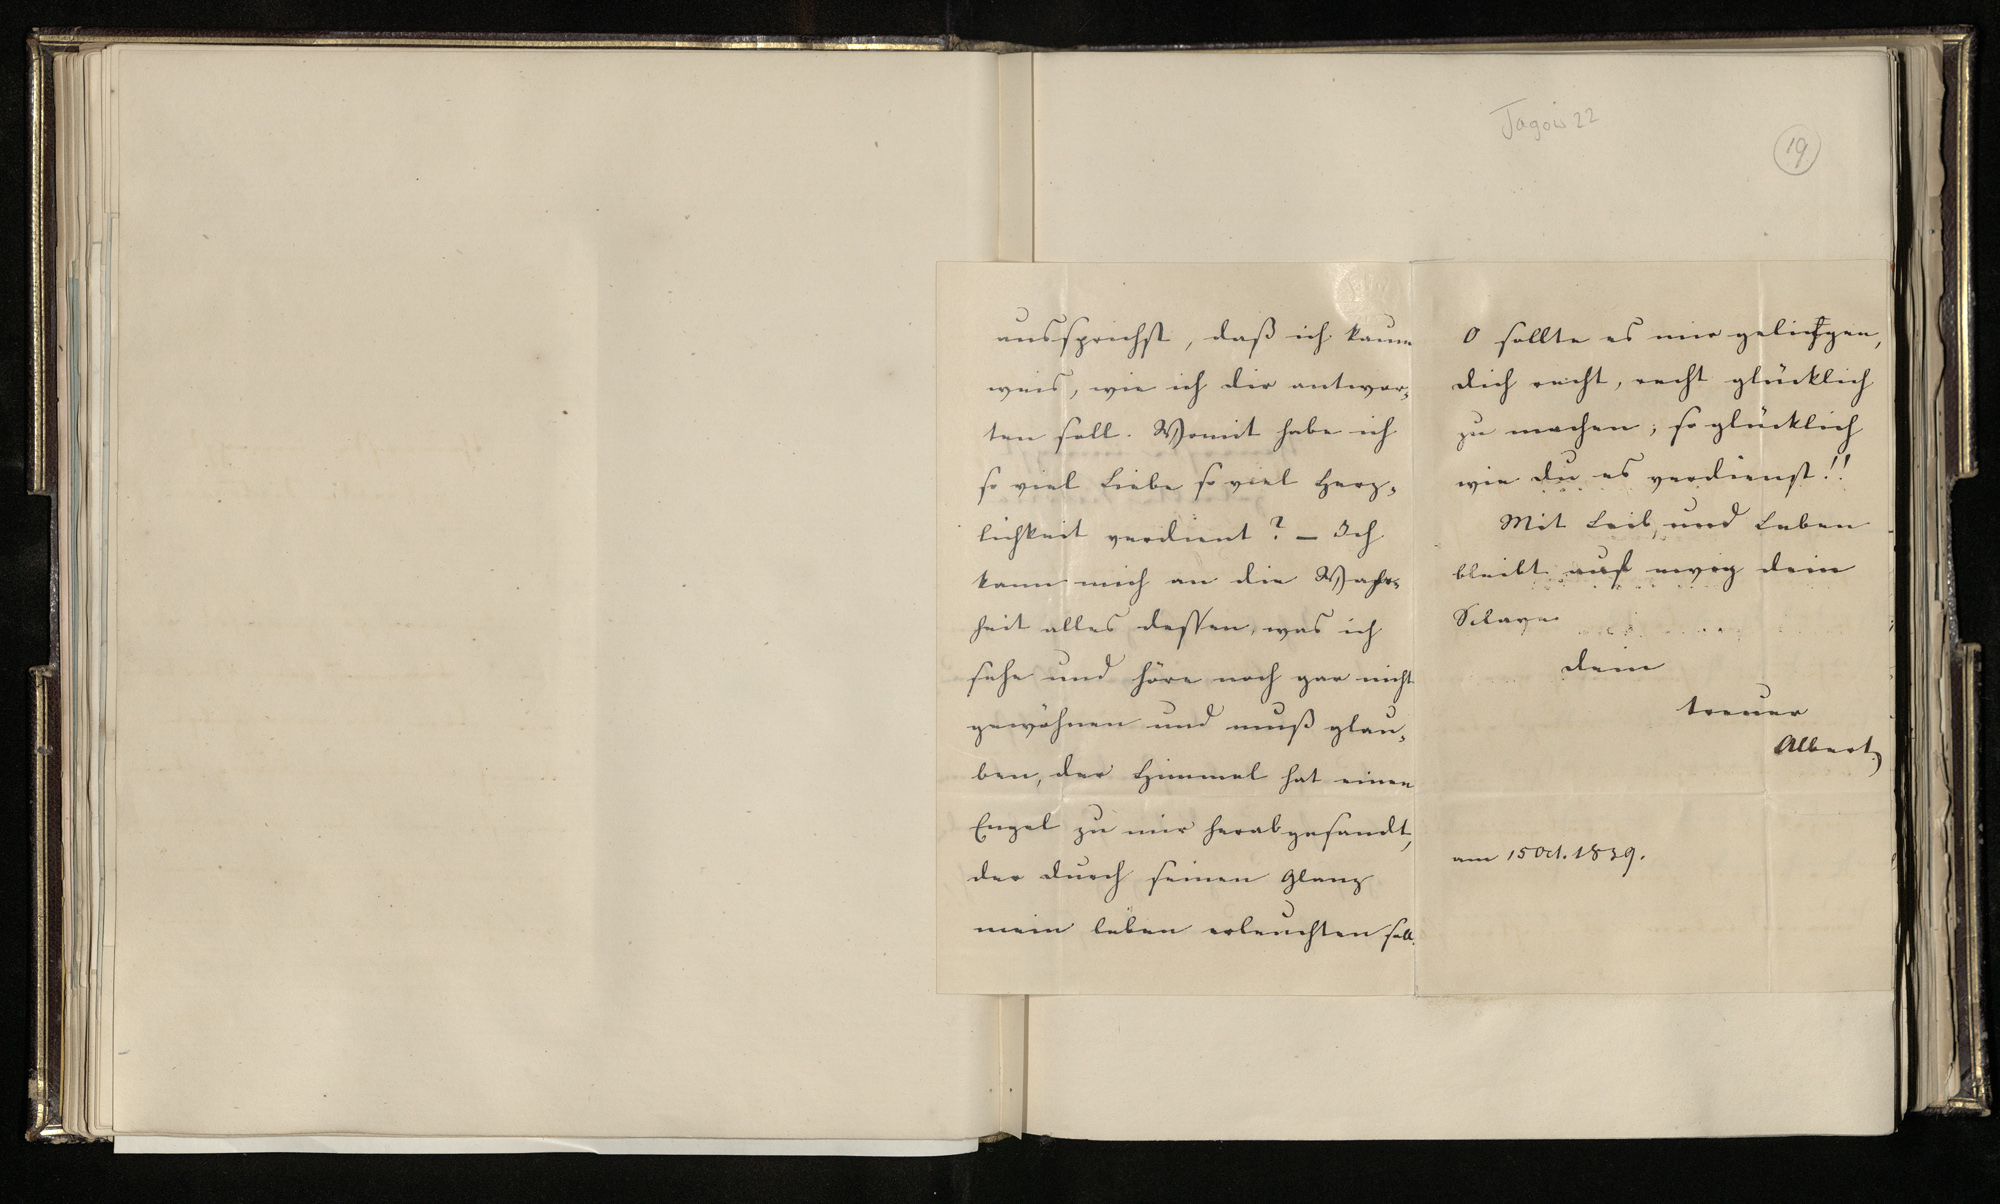 Jagow 22
19
aussprichst, daß ich kaum
weis, wie ich dir antwor-
ten soll. Womit habe ich
so viel Liebe so viel Herz-
lichkeit verdient? – Ich
kann mich an die Wahr-
heit alles dessen, was ich
sehe und höre noch gar nicht
gewöhnen und muß glau-
ben, der Himmel hat einen
Engel zu mir herabgesandt,
der durch seinen Glanz
mein leben erleuchten soll.
O sollte es mir gelingen,
dich recht, recht glücklich
zu machen; so glücklich
wie du es verdienst!!
Mit Leib und Leben
bleibt auf ewig dein
Sclave
dein
treuer
Albert
am 15 Oct. 1839.